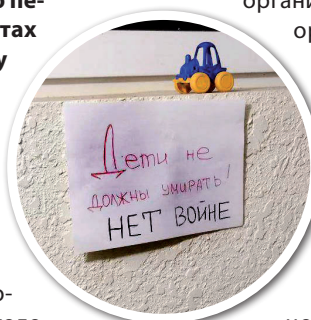 о пе-
тах
у
о-
органи
ор
Дети не
должны умирать!
НЕТ ВОЙНЕ